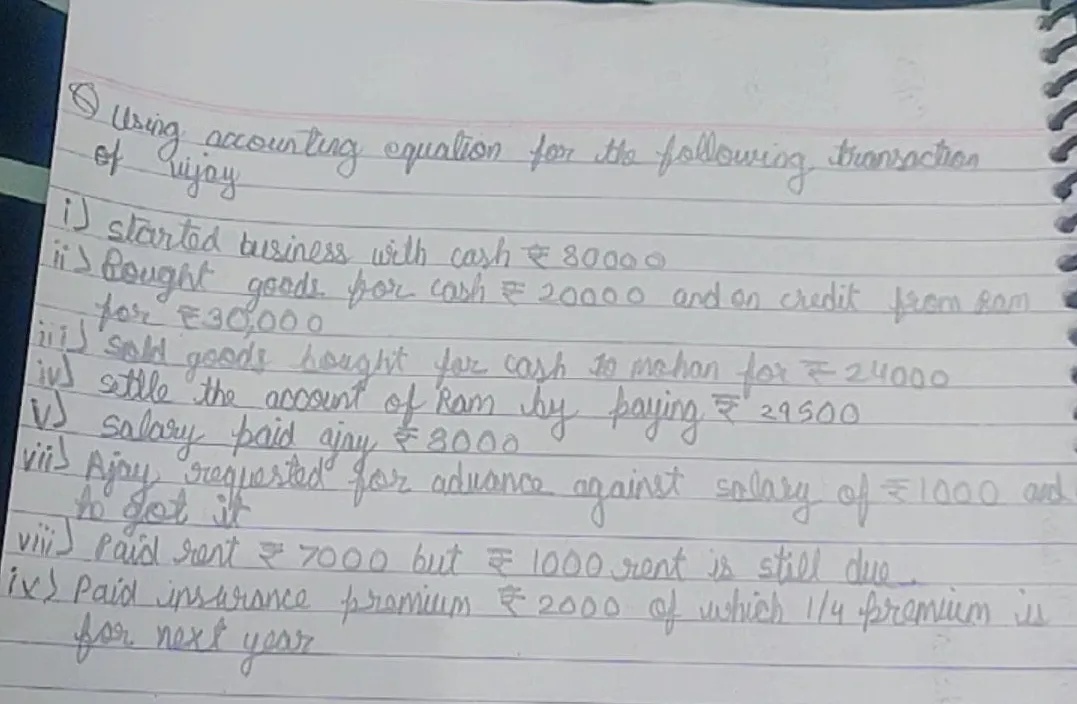 Q) Using accounting equation for the following transaction
of vijay
i) started business with cash ₹ 80000
ii) Bought goods for cash ₹ 20000 and on credit from Ram
for ₹30,000
iii) sold goods bought for cash to mohan for ₹ 24000
iv) settle the account of Ram by paying ₹ 29500
v) salary paid ajay ₹8000
vii) Ajay requested for advance against salary of ₹1000 and
to got it
viii) Paid rent ₹ 7000 but ₹ 1000 rent is still due.
ix) Paid insurance premium ₹ 2000 of which 1/4 premium is
for next year